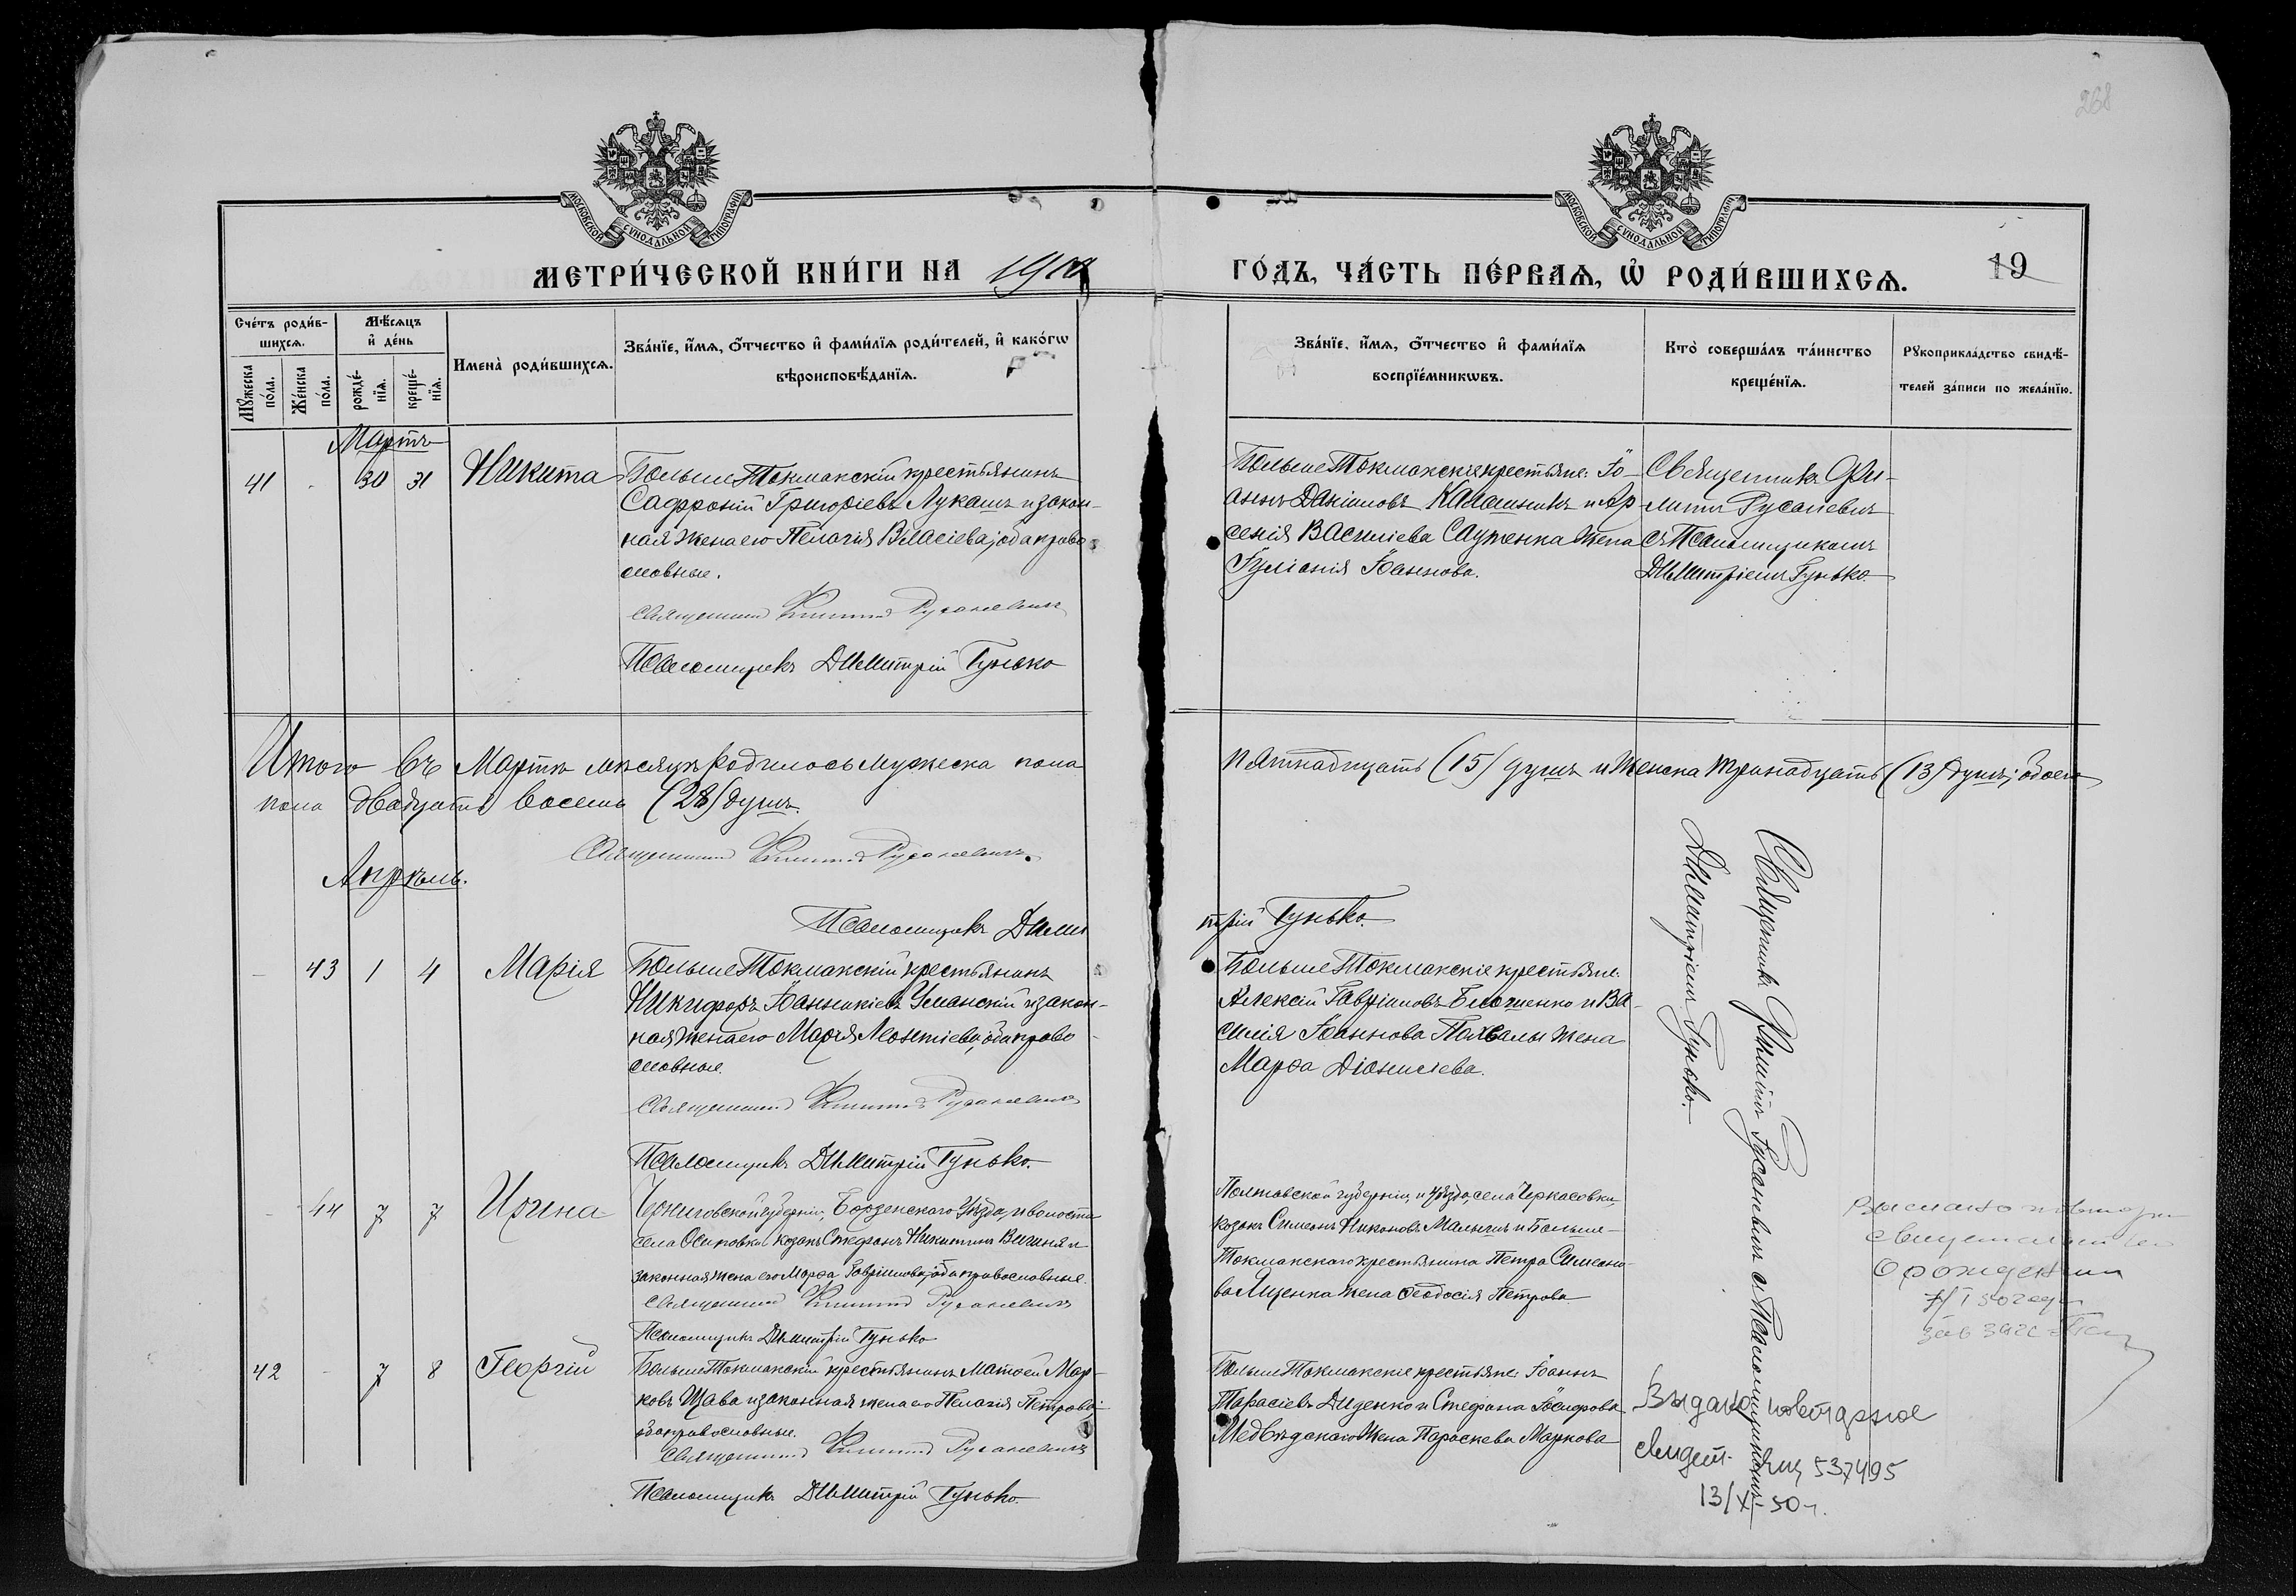 268
МОСКОВСКОЙ СѴНОДАЛЬНОЙ ТИПОГРАФІИ
МОСКОВСКОЙ СѴНОДАЛЬНОЙ ТИПОГРАФІИ
МЕТРИ́ЧЕСКОЙ КНИ́ГИ НА
ГО́ДЪ, ЧА́СТЬ ПЕ́РВАѦ, Ѡ҆ РОДИ́ВШИХСѦ.
19
Сче́тъ роди́в-
шихсѧ.
Мꙋ́жеска по́ла.
Же́нска по́ла.
Мѣ́сѧцъ
и҆ де́нь
рожде́-нїѧ.
креще́-нїѧ.
Имена̀ роди́вшихсѧ.
Зва́нїе, и҆́мѧ, ѻ҆́тчество и҆ фами́лїѧ роди́телей, и҆ како́гѡ
вѣроисповѣ́данїѧ.
Зва́нїе, и҆́мѧ, ѻ҆́тчество и҆ фами́лїѧ
воспрїе́мникѡвъ.
Кто̀ соверша́лъ та́инство
креще́нїѧ.
Рꙋкоприкла́дство свидѣ́-
телей за́писи по жела́нїю.
Мартъ
41 30 31 Никита
БольшеТокмакскій крестьянинъ
Сафроній Григоріевъ Лукашъ и закон-
ная жена его Пелагія Власіева; оба право
славные.
Священникъ Филиппъ Русаневичъ
Псаломщикъ Димитрій Гунько
БольшеТокмакскіе крестьяне: Іо-
аннъ Даніиловъ Калашникъ и Ар
сенія Василіева Саутенка жена
Іуліанія Іоаннова.
Священникъ Фи-
липпъ Русаневичъ
съ Псаломщикомъ
Димитріемъ Гунько.
Итого въ Мартѣ мѣсяцѣ родилось мужеска пола
пятнадцать (15) душъ и женска тринадцать (13) душъ; обоего
пола двадцать восемь (28) душъ.
Священникъ Филиппъ Русаневичъ.
Апрѣль.
Псаломщикъ Дими
трій Гунько.
- 43 1 4 Марія
БольшеТокмакскій крестьянинъ
Никифоръ Іоанникіевъ Уманскій и закон-
ная жена его Марія Леонтіева; оба право-
славные.
Священникъ Филиппъ Русаневичъ
Псаломщикъ Димитрій Гунько.
БольшеТокмакскіе крестьяне:
Алексій Гавріиловъ и Ва-
силія Іоаннова жена
Марѳа Діонисіева.
Священникъ Филиппъ Русаневичъ съ Псаломщикомъ
Димитріемъ Гунько.
- 44 7 7 Ирина
Черниговской губерніи, Борзенскаго уѣзда, и волости
села Осиповки козакъ Стефанъ Никитинъ и
законная жена его Марѳа Гавріилова; оба православные.
Священникъ Филиппъ Русаневичъ
Псаломщикъ Димитрій Гунько
Полтавской губерніи, и уѣзда, села Черкасовки,
козакъ Симеонъ Никоновъ и Больше-
Токмакскаго крестьянина Петра Симеоно-
ва Яценка жена Ѳеодосія Петрова
о рождении
42 - 7 8 Георгій
БольшеТокмакскій крестьянинъ Матѳей Мар-
ковъ Щава и законная жена его Пелагія Петрова;
оба православные.
Священникъ Филиппъ Русаневичъ
Псаломщикъ Димитрій Гунько.
БольшеТокмакскіе крестьяне: Іоаннъ
Тарасіевъ Диденко и Стефана Іосифова
Медвѣдскаго жена Параскева Маркова
Выдано повторное
свидет. 537495
13/XI-50г.